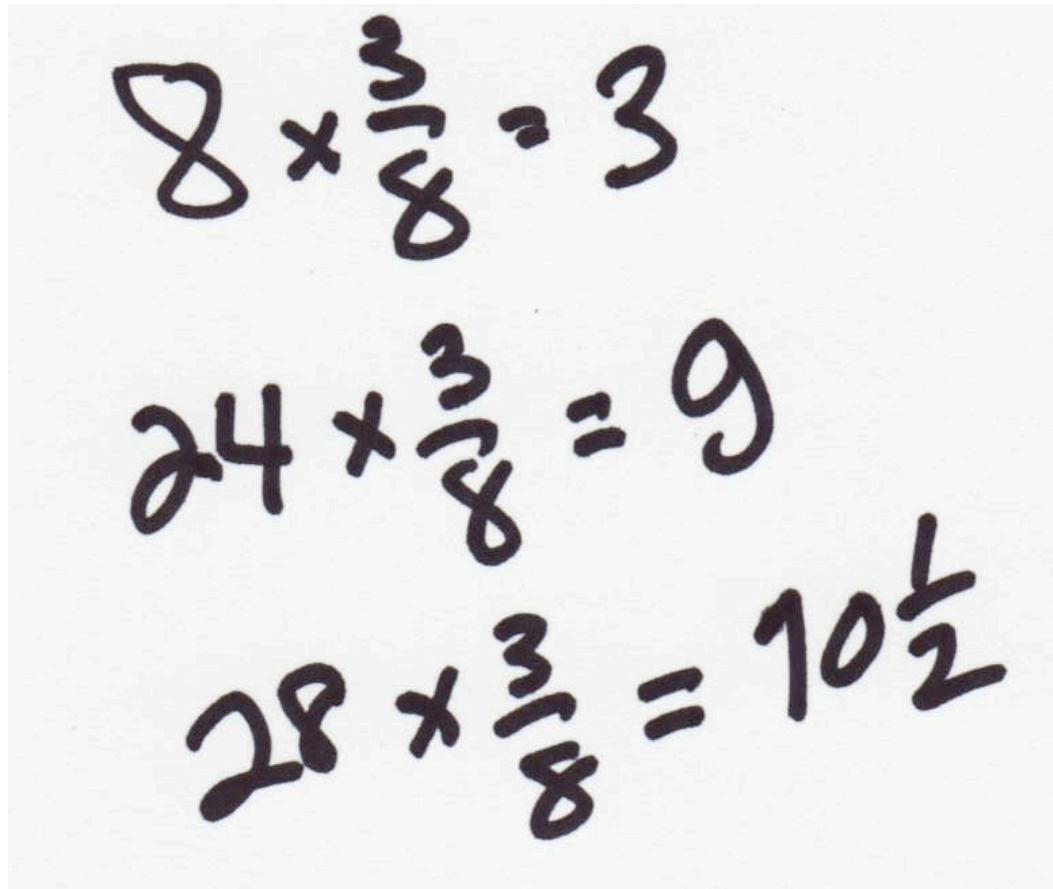 8 × 3/8 = 3
24 × 3/8 = 9
28 × 3/8 = 10 1/2